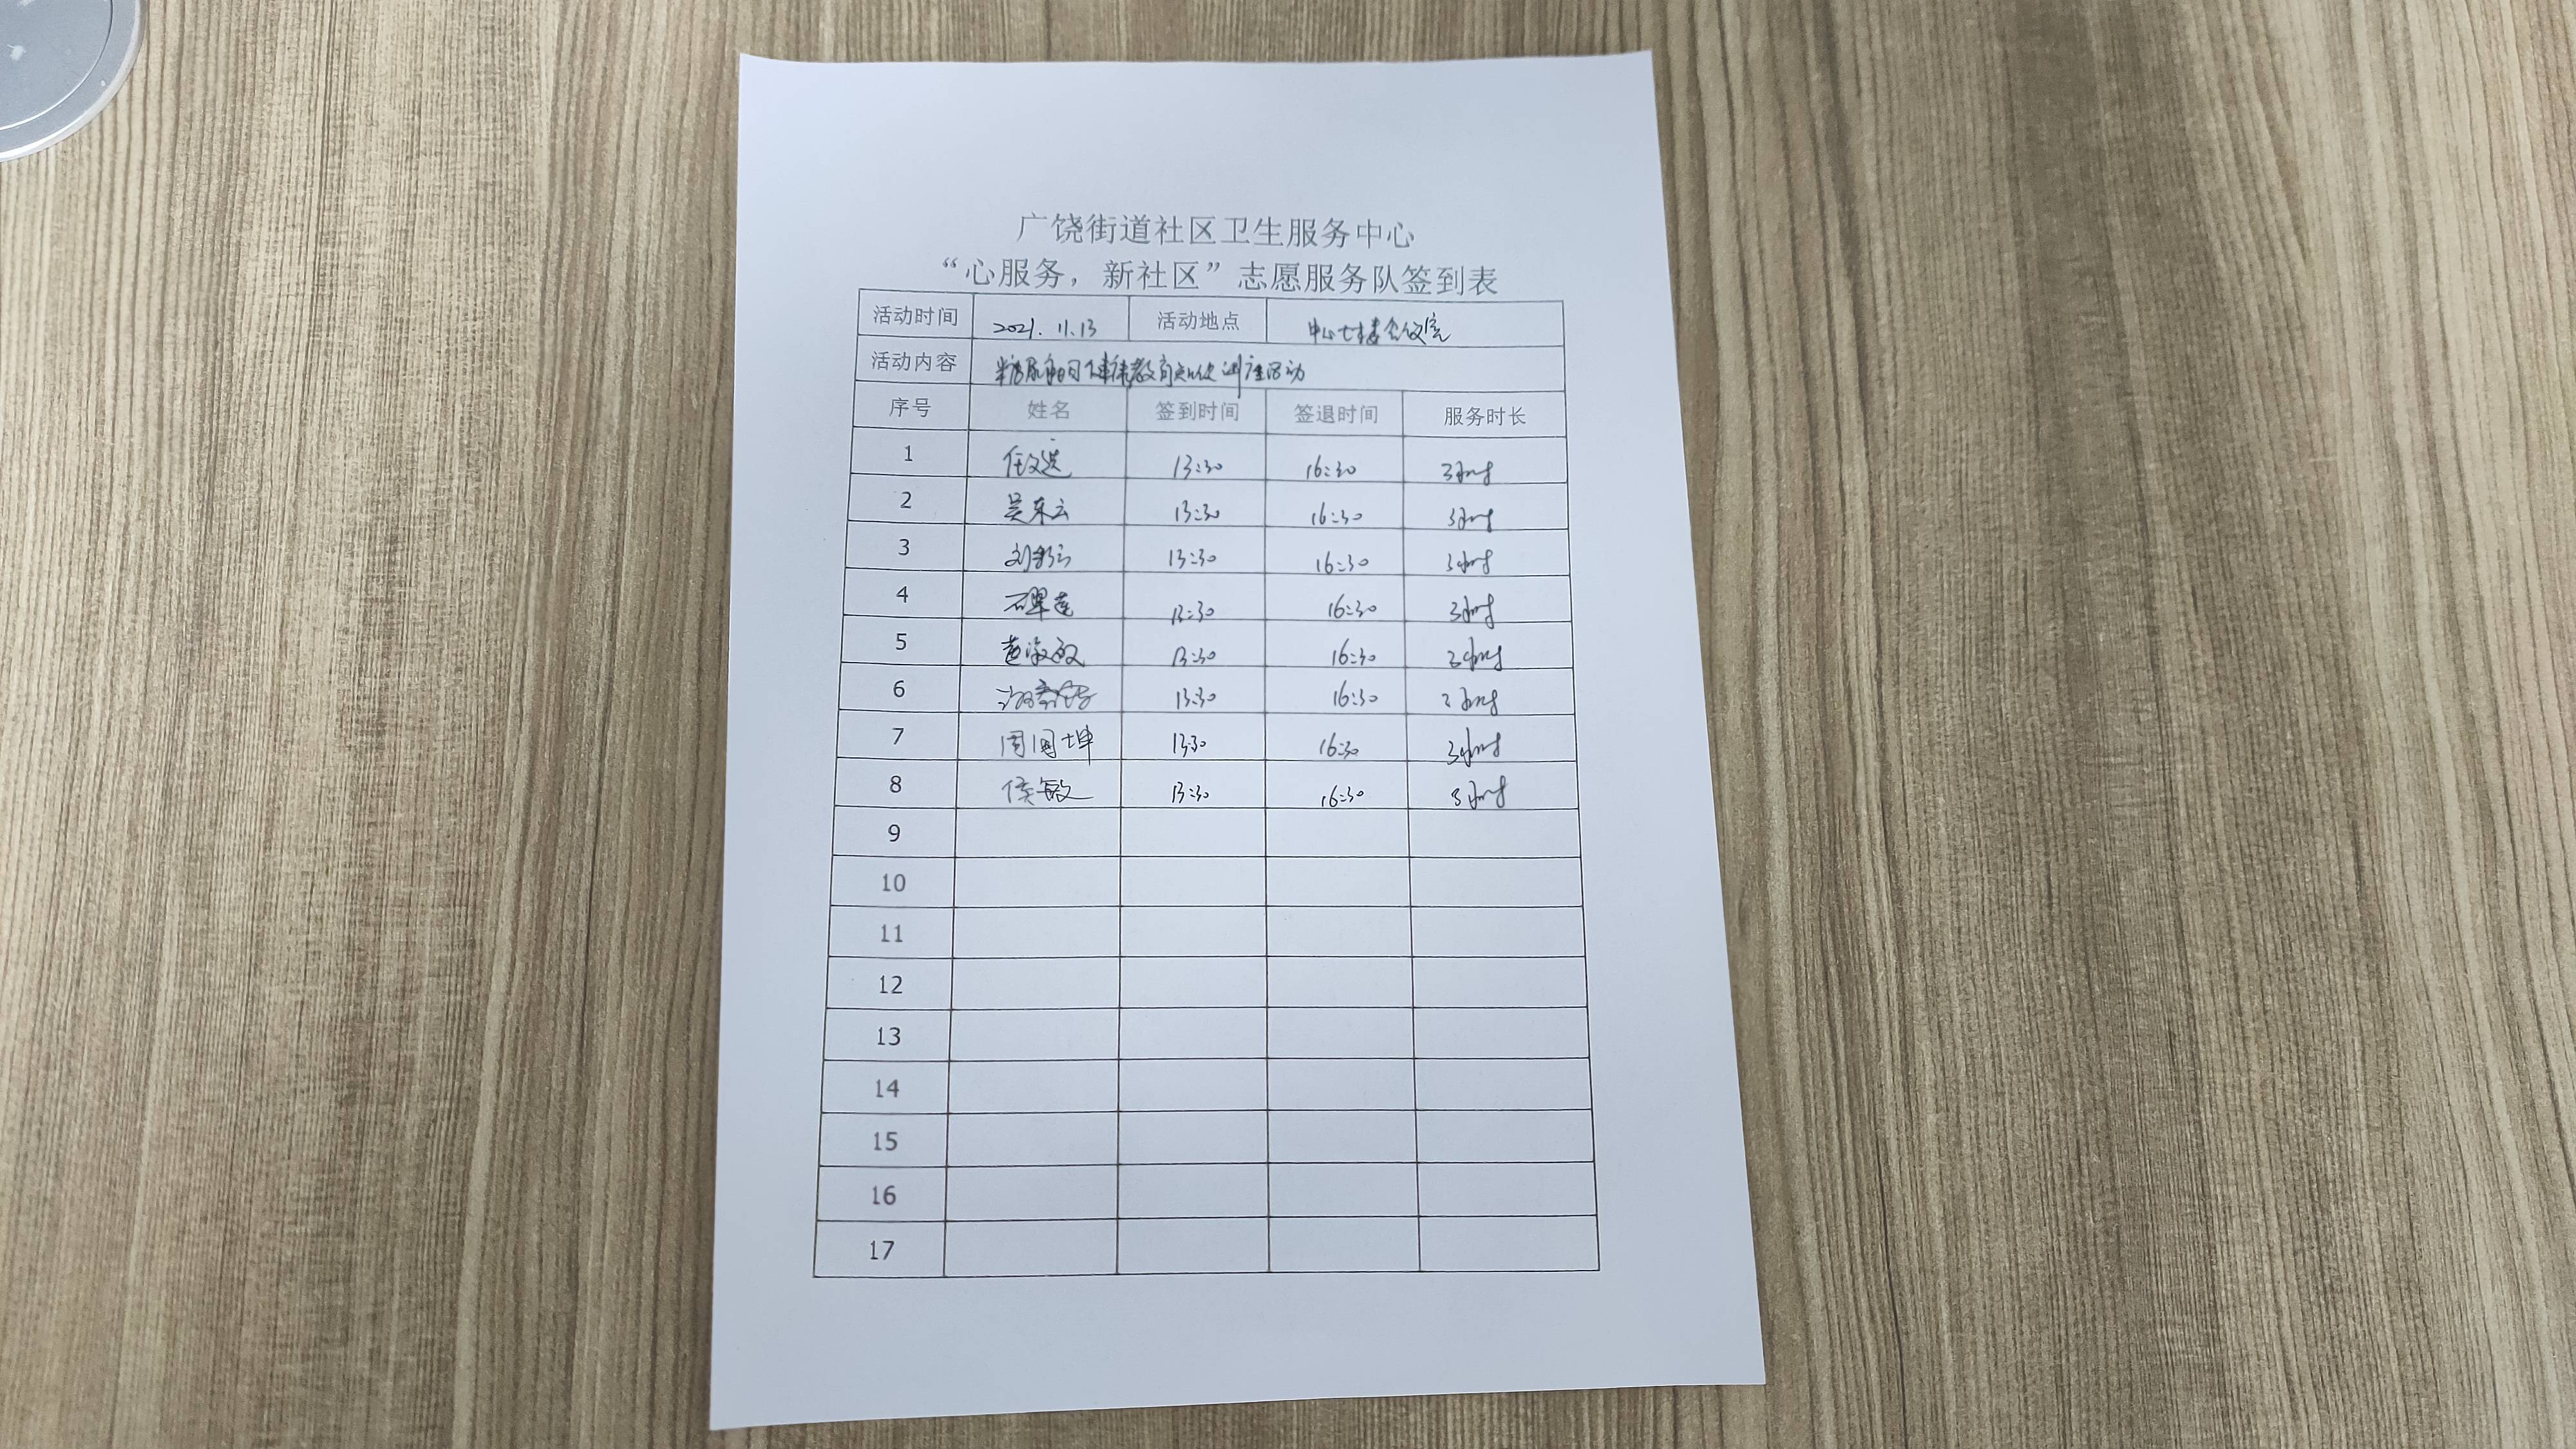 广饶街道社区卫生服务中心
“心服务，新社区”志愿服务队签到表
活动时间 2021.11.13 活动地点 中心七楼会议室
活动内容 糖尿病日健康教育知识讲座活动
序号 姓名 签到时间 签退时间 服务时长
1 13:30 16:30 3小时
2 吴东云 13:30 16:30 3小时
3 13:30 16:30 3小时
4 石翠莲 13:30 16:30 3小时
5 13:30 16:30 3小时
6 13:30 16:30 3小时
7 周国坤 13:30 16:30 3小时
8 侯敏 13:30 16:30 3小时
9
10
11
12
13
14
15
16
17